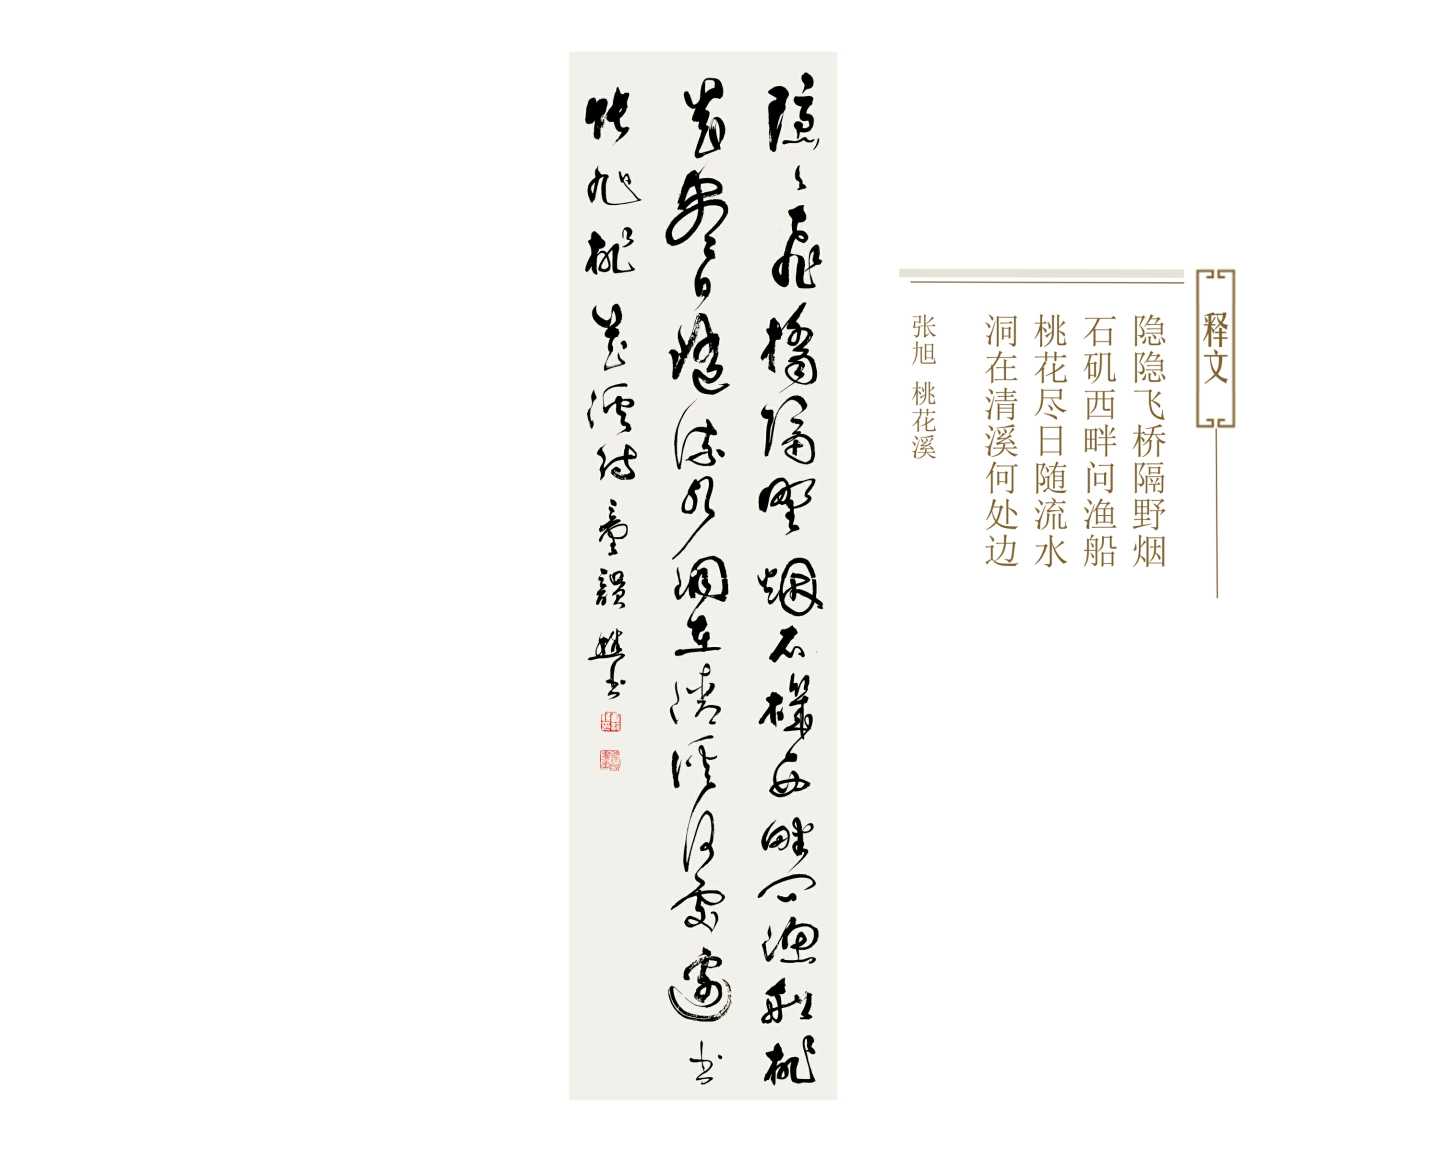 隐隐飞橋隔野烟石磯西畔问渔船桃
花尽日随流水洞在清溪何處邊书
张旭桃花溪诗童韻
书
释文
隐隐飞桥隔野烟
石矶西畔问渔船
桃花尽日随流水
洞在清溪何处边
张旭 桃花溪